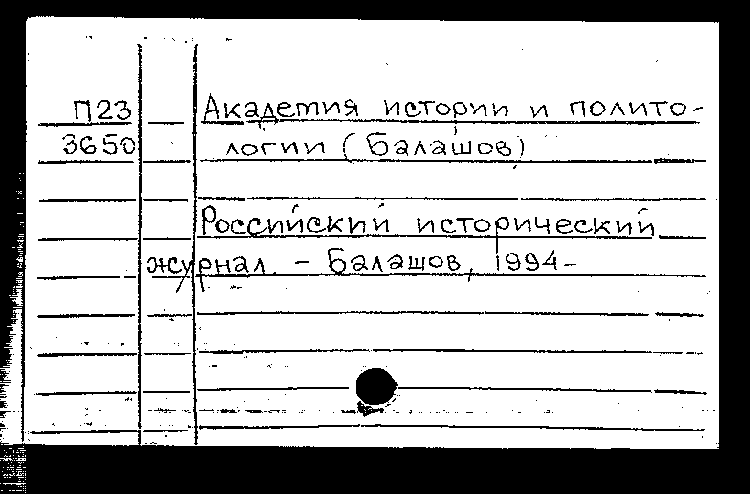 П23 Академия истории и полито-
3650 логии (Балашов)
Российский исторический
журнал. - Балашов, 1994-